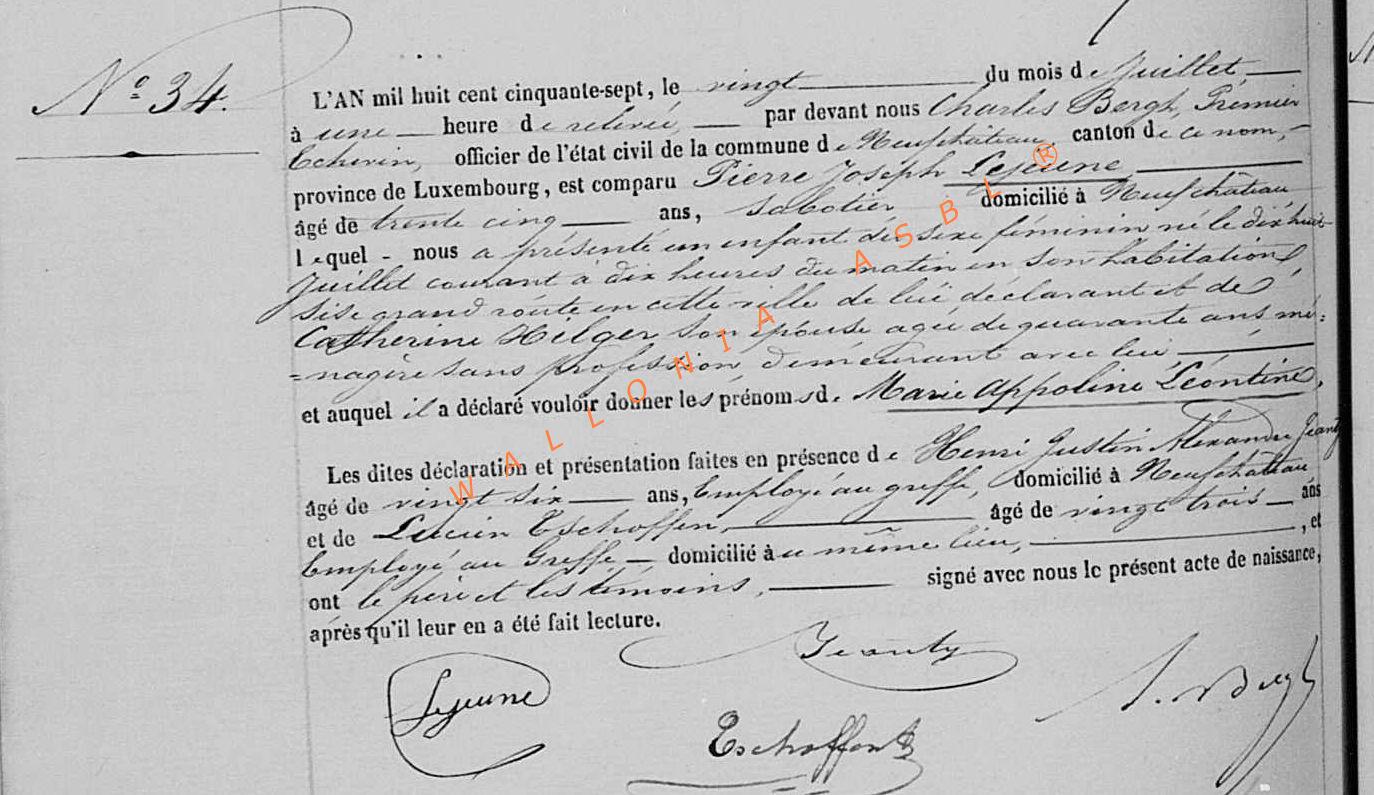 N° 34.
L'AN mil huit cent cinquante-sept, le vingt du mois de Juillet,
à une heure de relevée, par devant nous Charles Bergh, Premier
Echevin, officier de l'état civil de la commune de Neufchâteau, canton de ce nom,
province de Luxembourg, est comparu Pierre Joseph Lejeune
âgé de trente cinq ans, sabotier domicilié à Neufchâteau
lequel nous a présenté un enfant du sexe féminin né le dix huit
Juillet courant à dix heures du matin en son habitation
sise grand'route en cette ville de lui déclarant et de
Catherine Hilger son épouse agée de quarante ans mé=
=nagère sans profession, demeurant avec lui,
et auquel il a déclaré vouloir donner les prénoms de Marie Appoline Léontine,
Les dites déclaration et présentation faites en présence de Henri Justin Alexandre Jeanty
âgé de vingt six ans, Employé au greffe, domicilié à Neufchâteau
et de Lucien Eschoffen, âgé de vingt trois ans
Employé au Greffe domicilié au même lieu, , et
ont le père et les témoins, signé avec nous le présent acte de naissance,
après qu'il leur en a été fait lecture.
Jeanty
Lejeune
Bergh
Eschoffen
WALLONIA ASBL ®